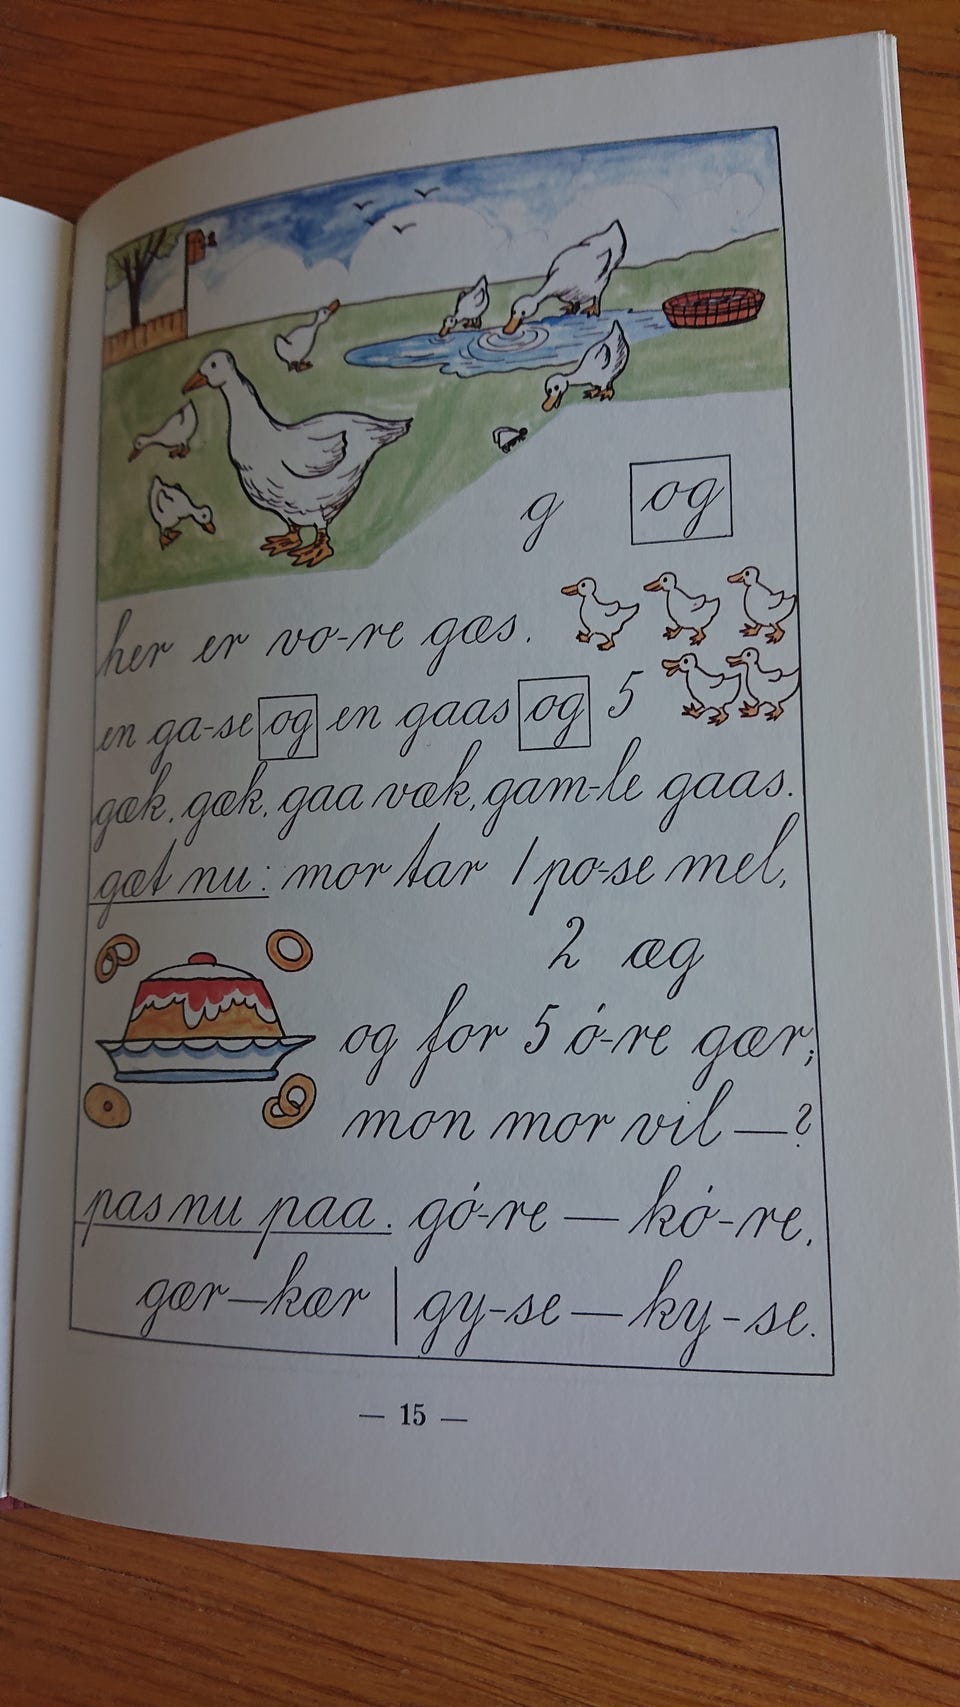 g og
her er vo-re gæs.
en ga-se og en gaas og 5
gæk, gæk, gaa væk, gam-le gaas.
gæt nu: mor tar 1 po-se mel,
2 æg
og for 5 ó-re gær;
mon mor vil — ?
pas nu paa. gó-re — kó-re,
gær—kær | gy-se — ky-se.
— 15 —